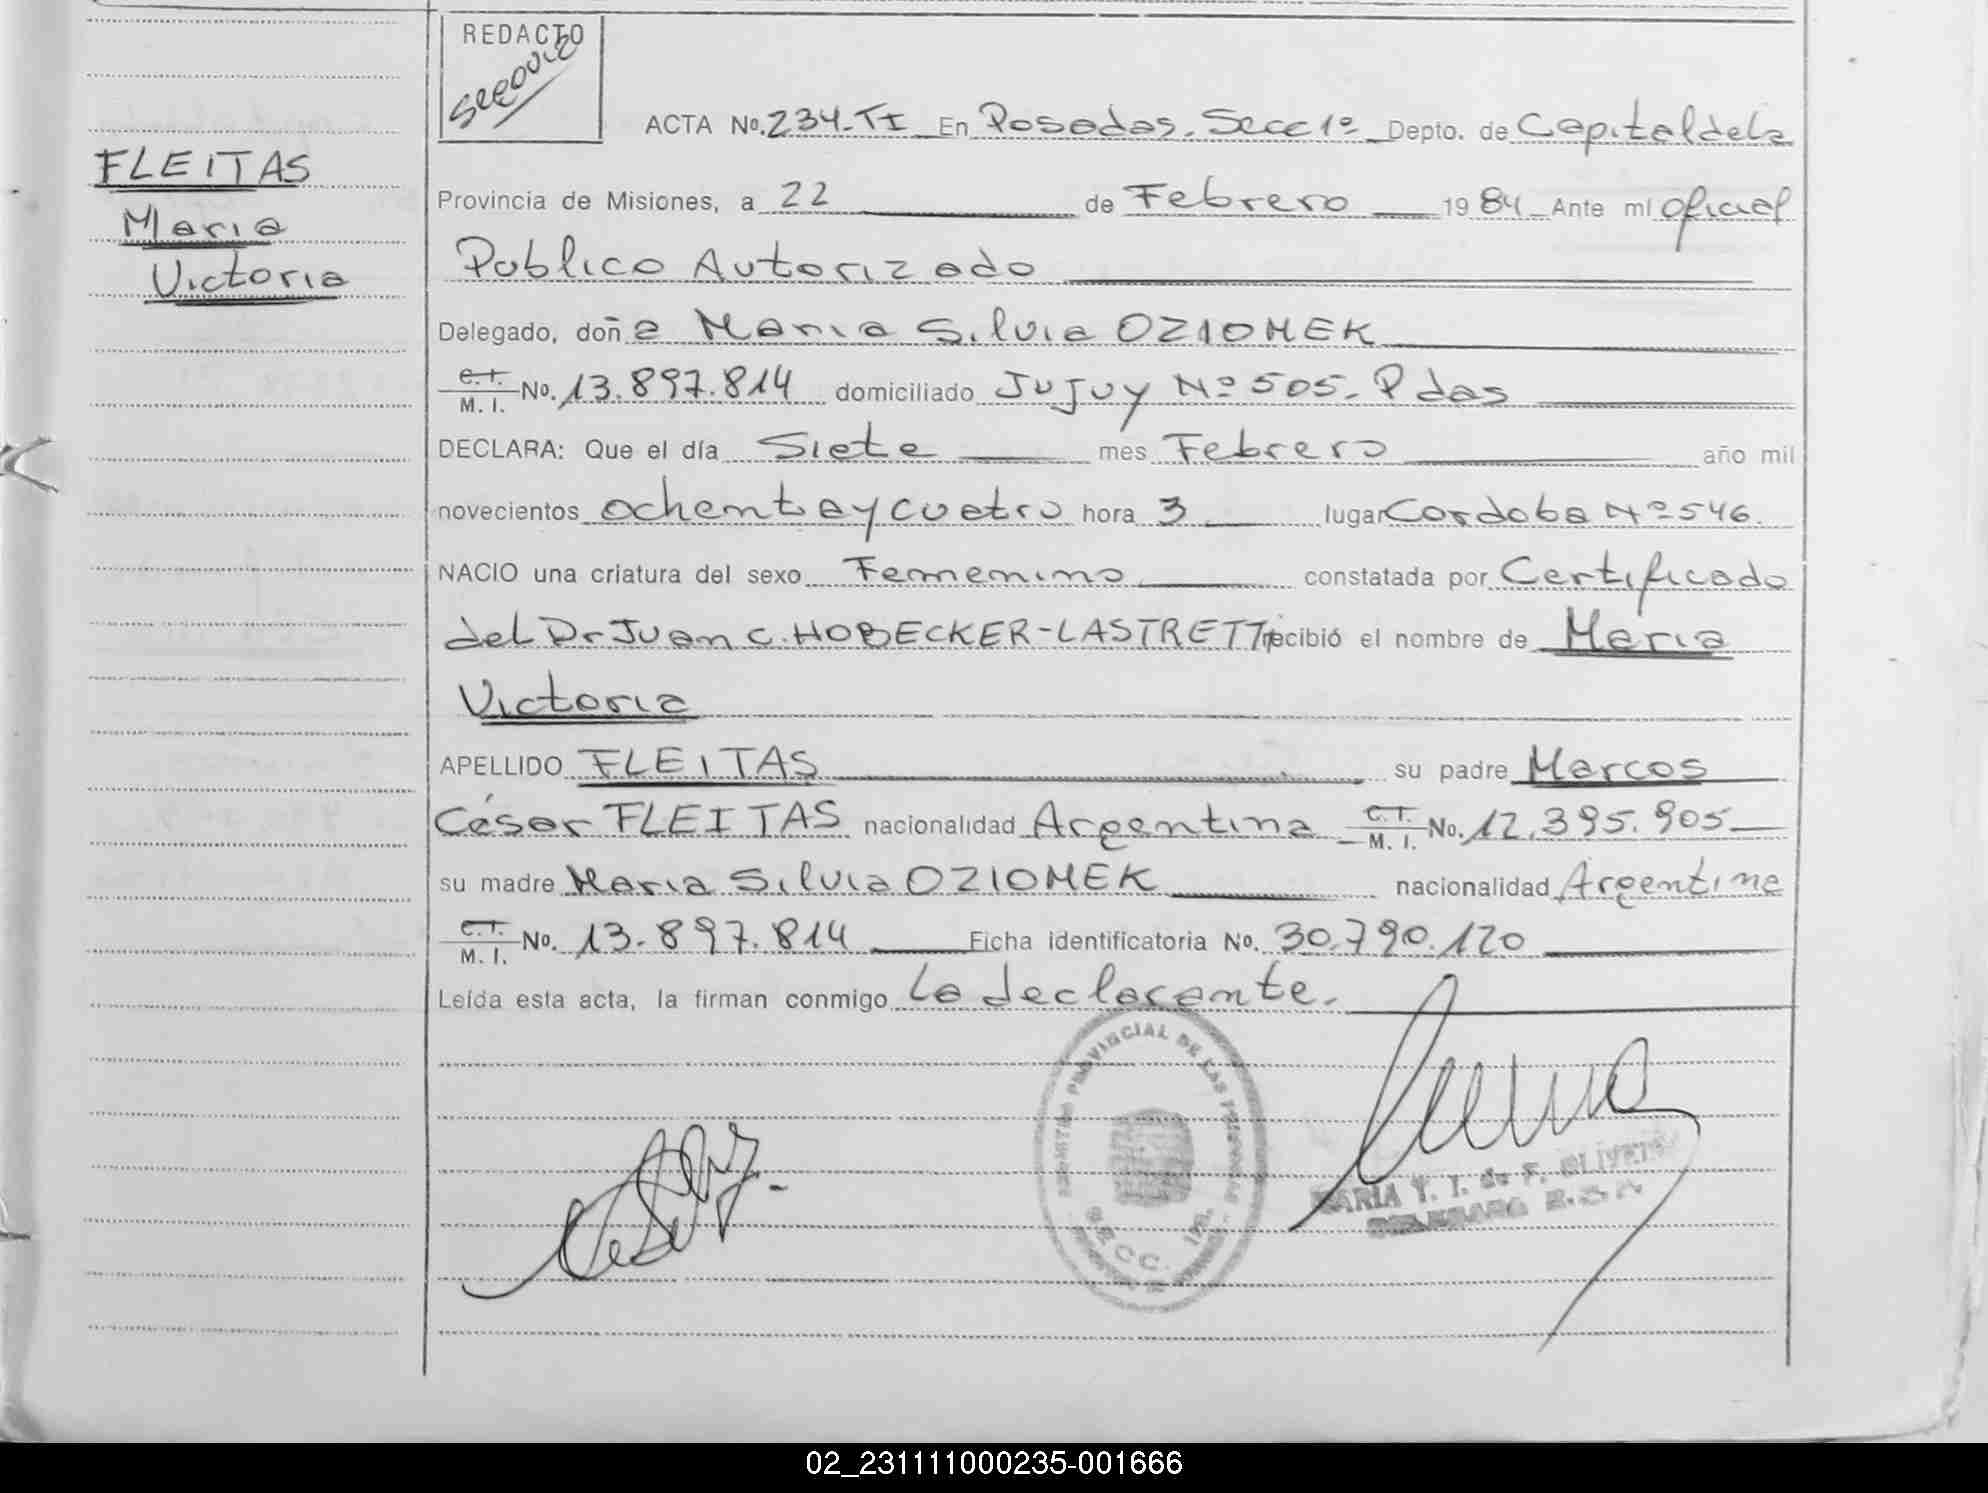 REDACTO
FLEITAS
Maria
Victoria
ACTA No. 234-TI En Posadas. Secc 1º Depto. de Capital de la
Provincia de Misiones, a 22 de Febrero 1984 Ante mi oficial
Publico Autorizado
Delegado, doña Maria Silvia OZIOMEK
C.I. M. I. No. 13.897.814 domiciliado Jujuy Nº 505- Pdas
DECLARA: Que el día Siete mes Febrero año mil
novecientos ochenta y cuatro hora 3 lugar Cordoba Nº 546.
NACIO una criatura del sexo Femenino constatada por Certificado
del Dr Juan C. HOBECKER-LASTRETT recibió el nombre de Maria
Victoria
APELLIDO FLEITAS su padre Marcos
César FLEITAS nacionalidad Argentina C.I. M. I. No. 12.395.905
su madre Maria Silvia OZIOMEK nacionalidad Argentina
C.I. M. I. No. 13.897.814 Ficha identificatoria No. 30.790.120
Leída esta acta, la firman conmigo La declarante.
PROVINCIAL DE LAS PERSONAS
SECC. 1ra.
MARIA Y. T. de F. OLIVEIRA
02_231111000235-001666